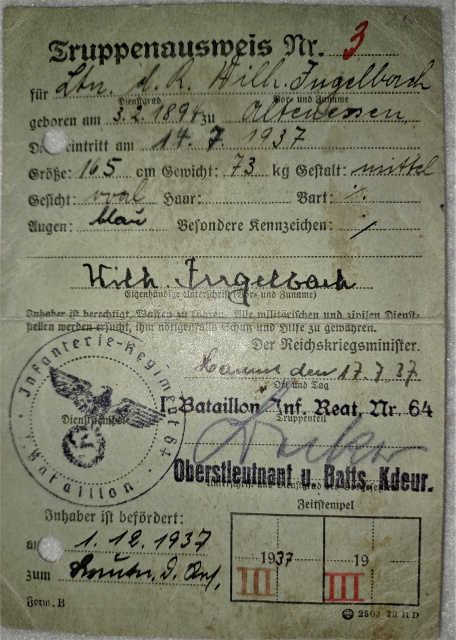 Truppenausweis Nr. 3
für Ltn. d. R. Wilh. Ingelbach
Dienstgrad Vor- und Zuname
geboren am 3.2.1894 zu Altenessen
Diensteintritt am 14. 7 1937
Größe: 165 cm Gewicht: 73 kg Gestalt: mittel
Gesicht: oval Haar: Bart: ./.
Augen: blau Besondere Kennzeichen: /
Wilh. Ingelbach
Eigenhändige Unterschrift (Vor- und Zuname)
Inhaber ist berechtigt, Waffen zu führen. Alle militärischen und zivilen Dienst-
stellen werden ersucht, ihm nötigenfalls Schutz und Hilfe zu gewähren.
Der Reichskriegsminister.
den 17.7.37
Ort und Tag
I. Bataillon Inf. Regt. Nr. 64
Truppenteil
Infanterie-Regiment 64
I. Bataillon
Dienststempel
Oberstleutnant u. Batls. Kdeur.
Zeitstempel
Inhaber ist befördert:
am 1.12.1937
zum
1937 19
III III
Form. B